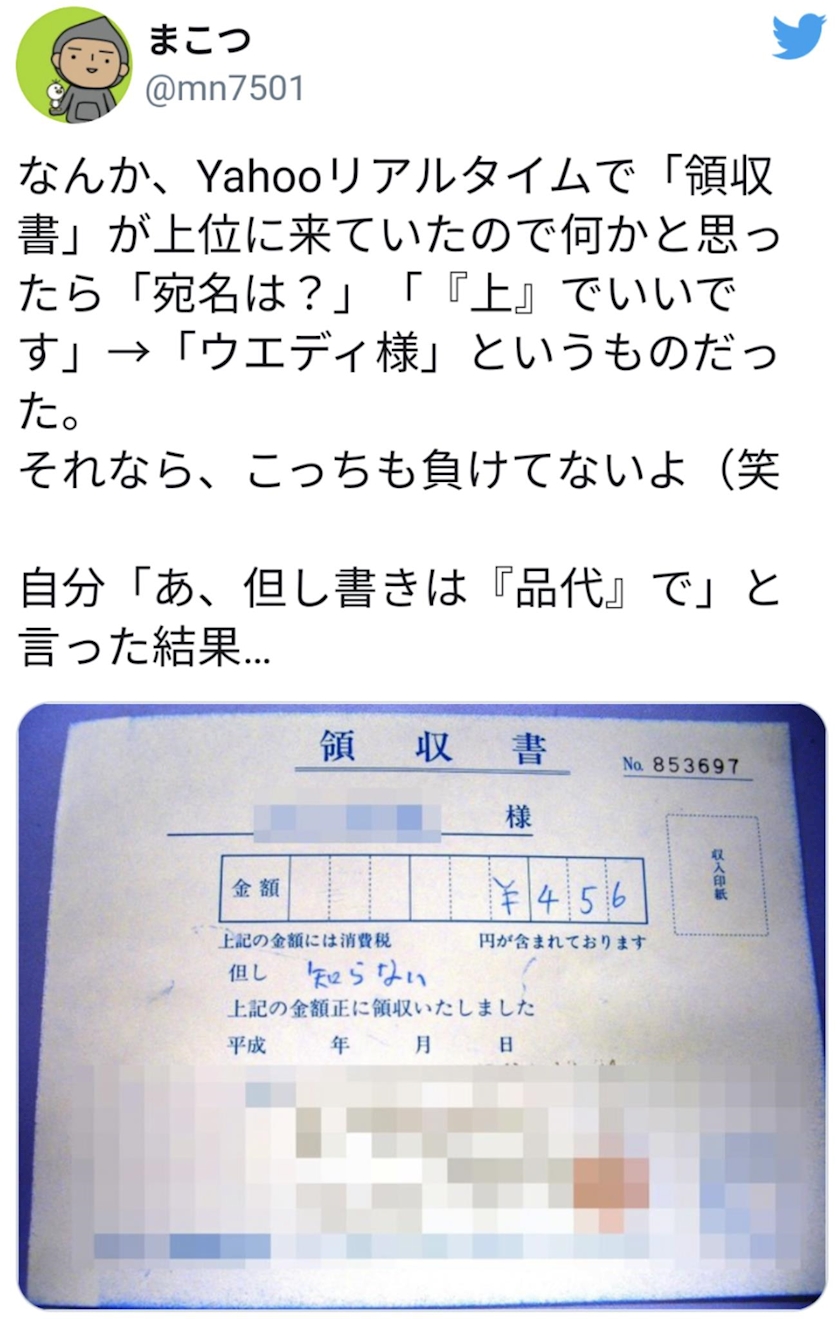 まこつ
@mn7501
なんか、Yahooリアルタイムで「領収
書」が上位に来ていたので何かと思っ
たら「宛名は？」「『上』でいいで
す」→「ウエディ様」というものだっ
た。
それなら、こっちも負けてないよ（笑
自分「あ、但し書きは『品代』で」と
言った結果…
領収書
No. 853697
様
収入印紙
金額 ¥456
上記の金額には消費税 円が含まれております
但し 知らない
上記の金額正に領収いたしました
平成 年 月 日